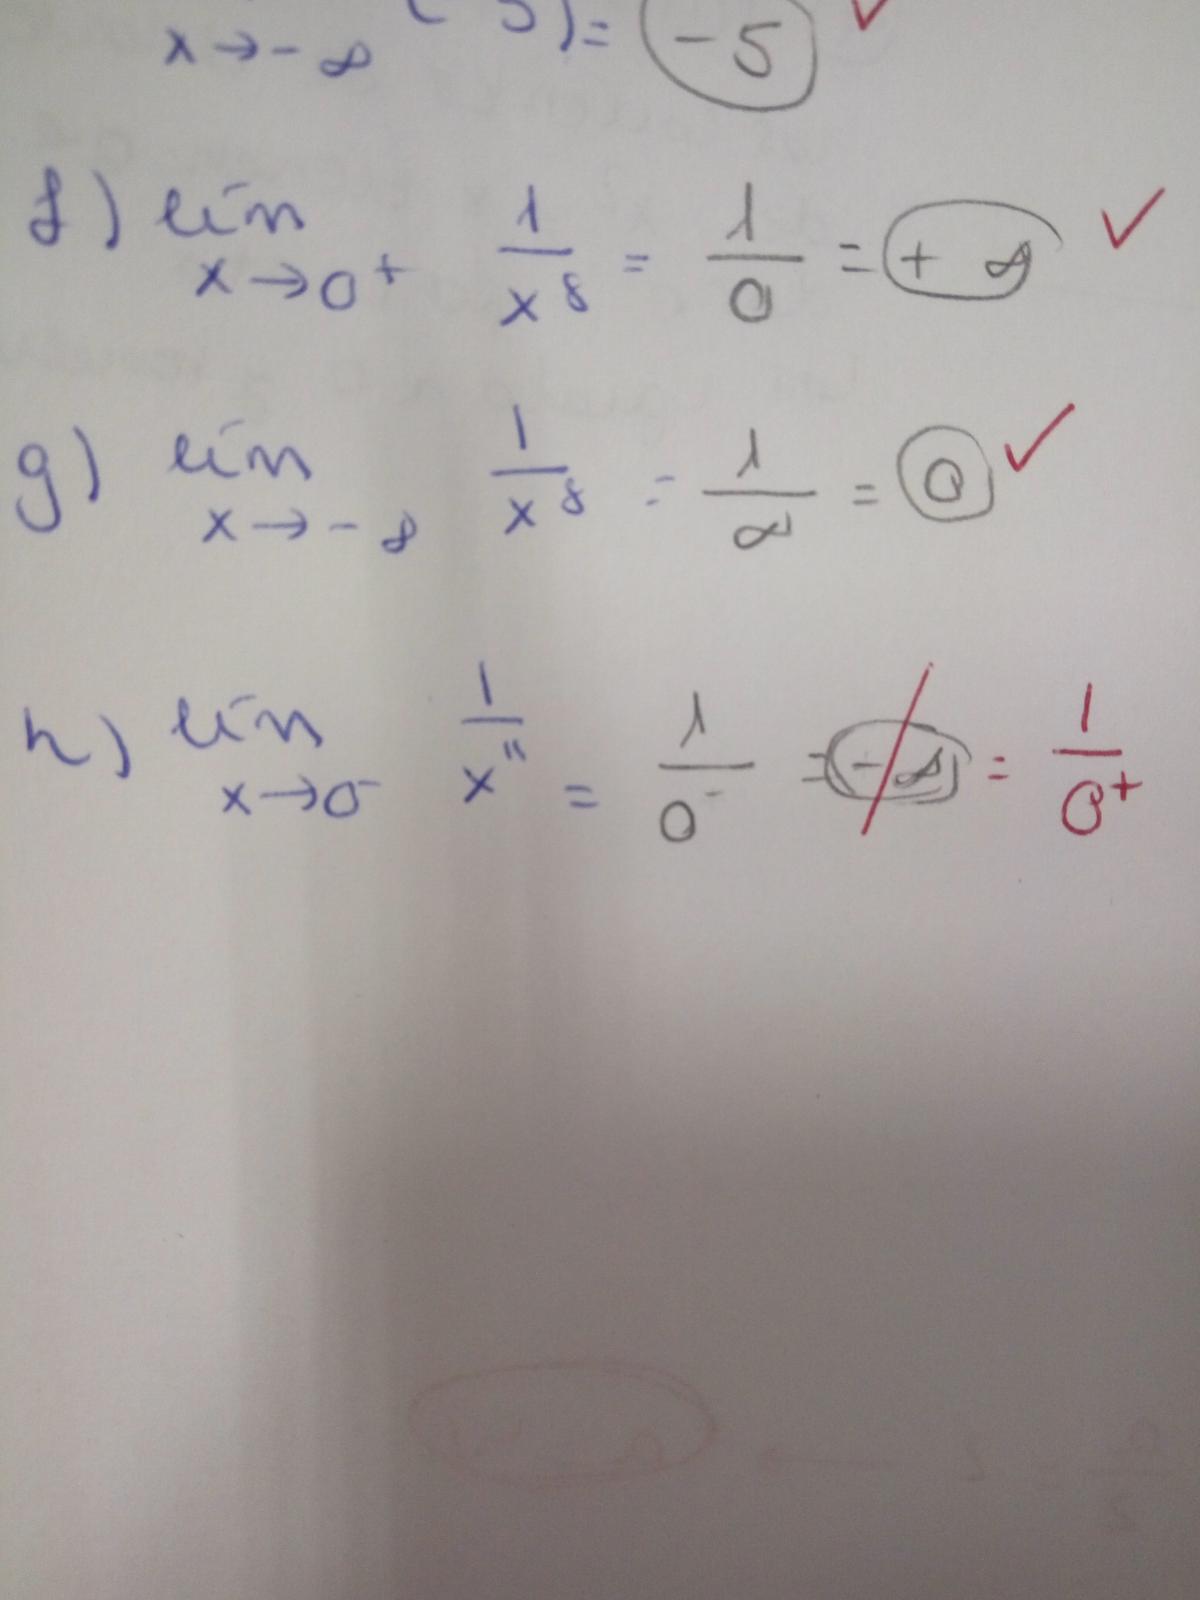 lím x→-∞ (-5) = -5 ✓
f) lím x→0⁺ 1/x⁸ = 1/0 = +∞ ✓
g) lím x→-∞ 1/x⁸ = 1/∞ = 0 ✓
h) lím x→0⁻ 1/x¹¹ = 1/0⁻ = -∞ = 1/0⁺